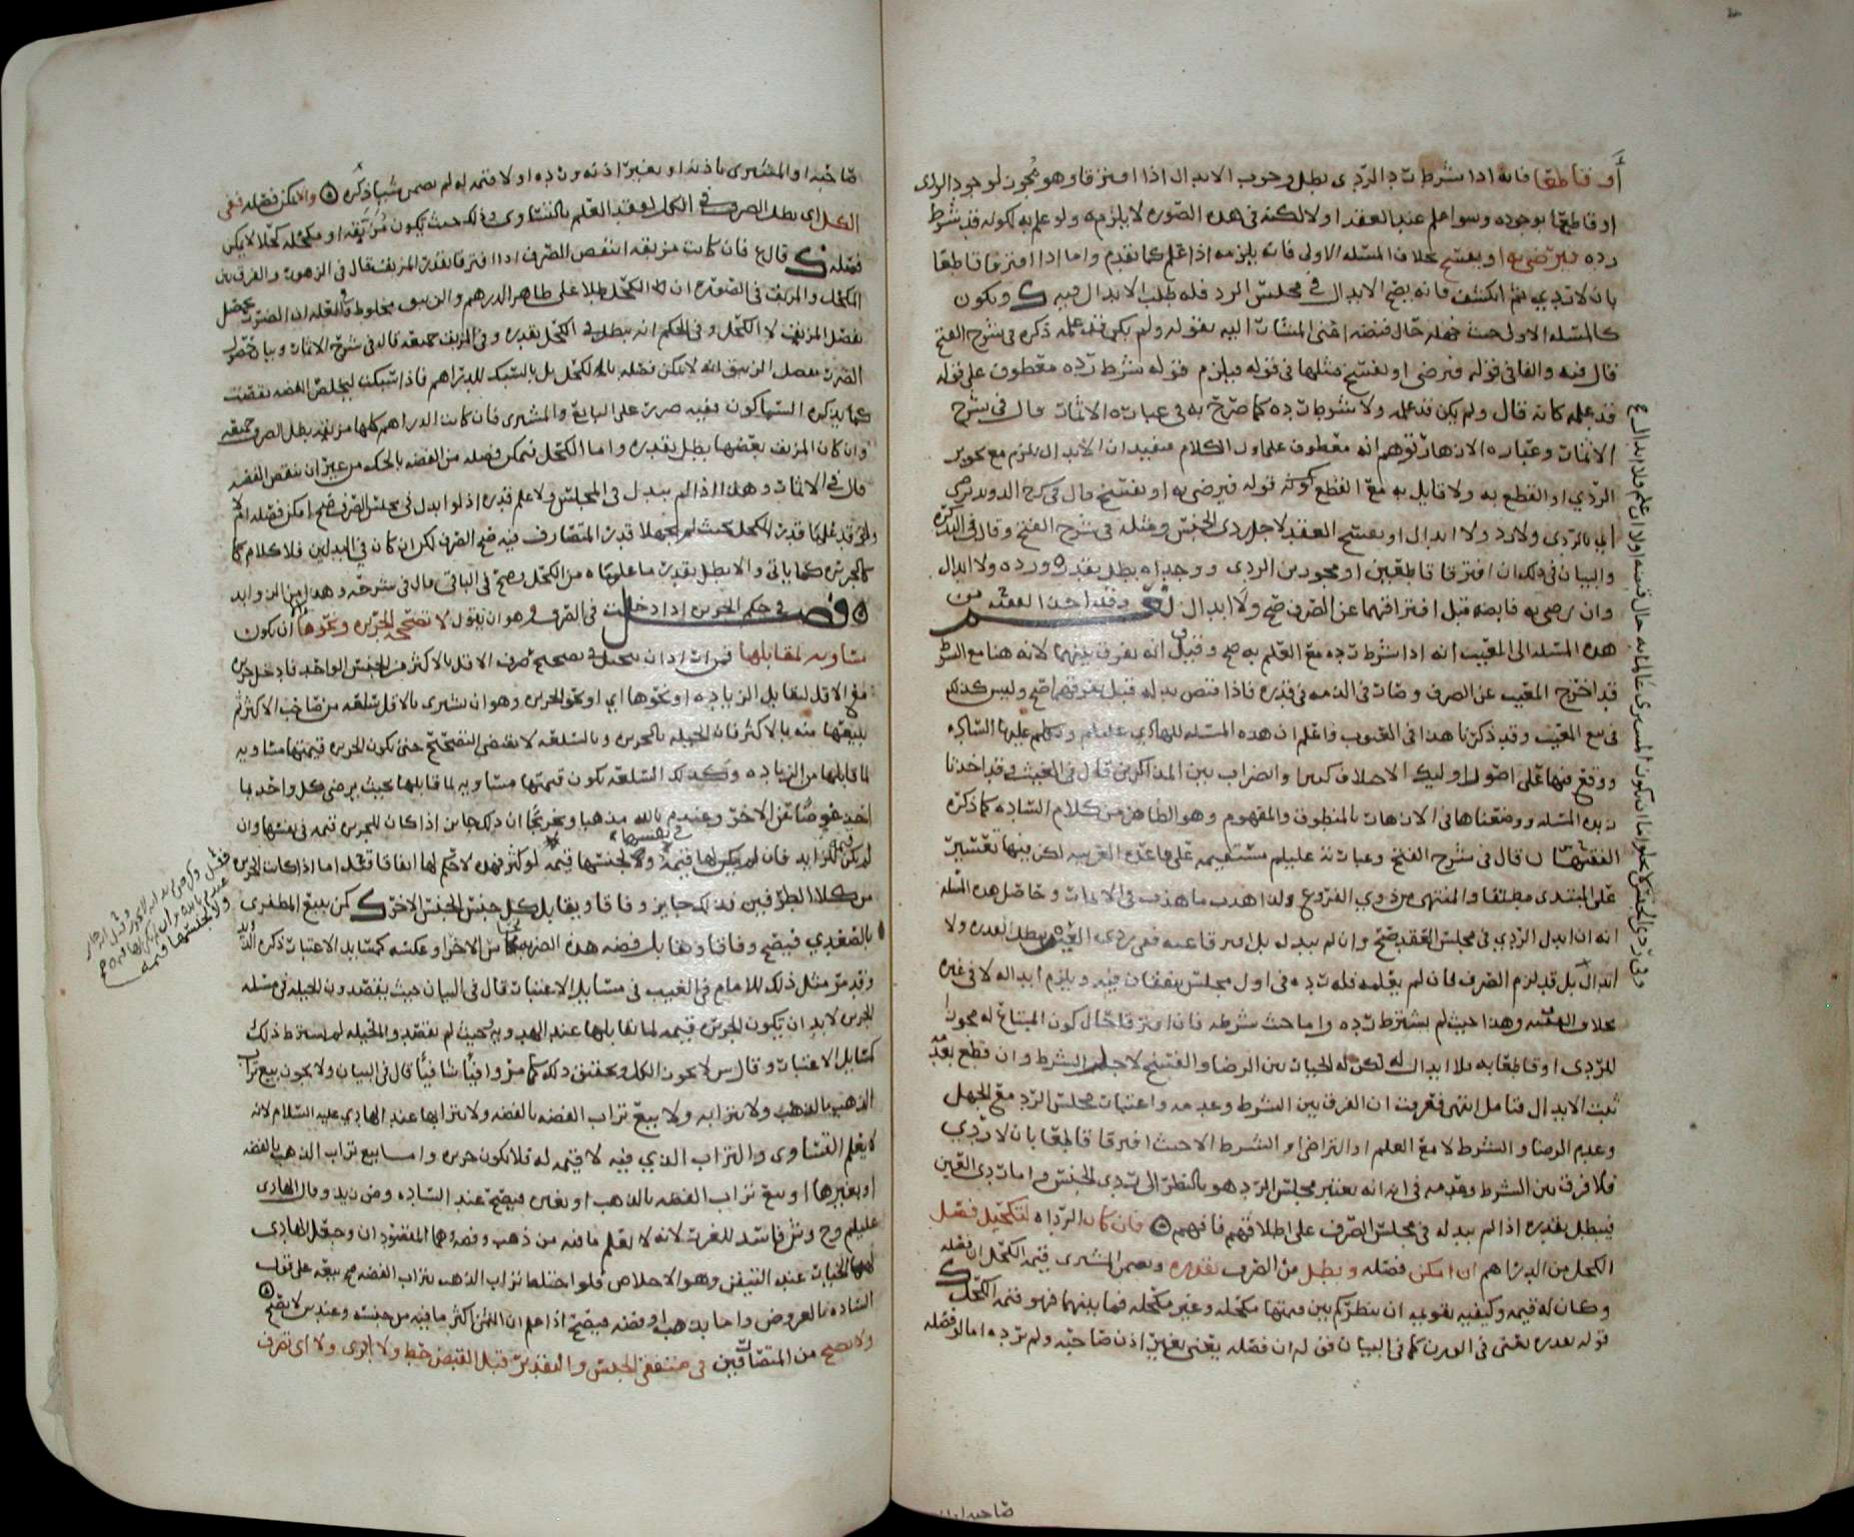 أو قاطعا فانه اذا شرط رد الردى بطل وجوب الابدال اذا افترقا وهو مجوز لوجود الردى
او قاطعا بوجوده وسوا علم عند العقد او لا لكنه فى هذه الصوره لا يلزمه ولو علم به لكونه قد شرط
رده فيرضى به او يفسخ بخلاف المسئله الاولى فانه يلزمه اذا علم كما تقدم واما اذا افترقا قاطعا
بان لا ردي ثم انكشف فانه يصح الابدال في مجلس الرد فله طلب الابدال فيه ويكون
كالمسئله الاولى حيث جهله حال قبضه اعنى المشار اليه بقوله ولم يكن قد علمه ذكره فى شرح الفتح
قال فيه والفا فى قوله فيرضى او يفسخ مثلها فى قوله فيلزم قوله شرط رده معطوف على قوله
قد علمه كانه قال ولم يكن قد علمه ولا شرط رده كما صرح به فى عبارة الاثمار قال فى شرح
الاثمار وعباره الازهار توهم انه معطوف على اول الكلام فيفيد ان الابدال يلزم مع تجويز
الردي او القطع به ولا قايل به مع القطع كونه قوله فيرضى به او يفسخ قال فى
اي بالردى ولا رد ولا ابدال او يفسخ العقد لاجل ردى الجنس ومثله فى شرح الفتح وقال فى التذكره
والبيان فى ذلك ان افترقا قاطعين او مجوزين الردى ووجداه بطل بقدره ورده ولا ابدال
وان رضى به قابضه قبل افتراقهما عن الصرف صح ولا ابدال وقد اخذ الفقيه من
هذه المسئله الى المعيب انه اذا شرط رده مع العلم به صح وقيل انه يفرق بينهما لانه هنا مع الشرط
قد اخرج المعيب عن الصرف وصار فى الذمه فى قدره فاذا قبض بدله قبل تفرقهما صح وليس كذلك
فى بيع المعيب وقد ذكرنا هذا فى العيوب فاعلم ان هذه المسئله للهادي عليلم وتكلم عليها الساده
ووقع فيها على اصول اوليك الاختلاف كثيرا واضراب بين المذاكرين قال فى الغيث وقد اخذنا
زبده المسئله ووضعناها فى الازهار بالمنطوق والمفهوم وهو الظاهر من كلام الساده كما ذكره
قال فى شرح الفتح وعبارته عليلم مستقيمه على قاعده العربيه لكن فيها تعسير
على المبتدى مطلقا والمنتهى من ذوي الفروع ولذا هذب ما هذب فى الاثمار وحاصل هذه المسئله
انه ان ابدل الردي فى مجلس العقد صح وان لم يبدله بل افترقا عنه ففى ردى العين يبطل بقدره ولا
ابدال بل قد لزم الصرف فان لم يعلمه فله رده فى اول مجلس يتفقان فيه ويلزم ابداله لا فى غيره
بخلاف القيمه وهذا حيث لم يشترط رده واما حيث شرطه فان افترقا حال كون المبتاع له مجوزا
للردى او قاطعا به فلا ابدال له لكن له الخيار بين الرضا والفسخ لاجل الشرط وان قطع بعدمه
ثبت الابدال فتامل انتهى فعرفت ان الفرق بين الشرط وعدمه واعتبار مجلس الرد مع الجهل
وعدم الرضا والشرط لا مع العلم او التراضى او الشرط الا حيث افترقا قاطعا بان لا ردي
فلا فرق بين الشرط وعدمه فى انه يعتبر مجلس الرد هو بالنظر الى ردى الجنس واما ردى العين
فيبطل بقدره اذا لم يبدله فى مجلس الصرف على اطلاقهم فافهم فان كان الرداه لتكحيل فصل
الكحل من الدراهم ان امكن فصله وبطل من الصرف بقدره ويضمن المشترى قيمه الكحل ان فصله
وكان له قيمه وكيفيه تقويمه ان ينظر كم بين قيمتها مكحله وغير مكحله فما بينهما فهو قيمه الكحل
قوله بقدره يعنى فى الوزن كما فى البيان قوله ان فصله يعنى بغير اذن صاحبه ولم يرده اما لو فصله
صاحبه او
صاحبه او المشترى باذنه او بغير اذنه ورده او لا قيمه له لم يضمن شيا ذكره والا يمكن فصله ففى
الكل اي بطل الصرف فى الكل لفقد العلم بالتساوى وذلك حيث تكون مزيفه او مكحله كحلا لا يمكن
فصله قال فان كانت مزيفه انتقض الصرف اذا افترقا بقدر المزيف قال فى الزهور والفرق بين
المكحل والمزيف فى الصوره ان الكحل طلا على ظاهر الدرهم والزيف مخلوط
يفصل المزيف لا الكحل وفى الحكم انه يبطل فى الكحل بقدره وفى المزيف جميعه قال فى شرح الاثمار وبيان حصول
الضرر بفصل الزيف انه لا يمكن فصله بل بالسبك للدراهم فاذا سبكت لتخلص الفضه نقصت
كما يذكره السباكون ففيه ضرر على البايع والمشترى فان كانت الدراهم كلها مزيفه بطل الصرف جميعه
وان كان المزيف بعضها بطل بقدره واما الكحل فيمكن فصله من الفضه بالحك من غير ان ينقص الفضه
قال فى الاثمار وهذا اذا لم يبدل فى المجلس ولا علم قدره اذ لو ابدل فى مجلس الصرف صح امكن فصله ام لا
وان قد علما قدر الكحل حيث لم يجهلا قدر المتصارف فيه صح الصرف لكن ان كان فى البدلين فلا كلام
كالجريره كما ياتى والا بطل بقدر ما علماه من الكحل وصح فى الباقى قال فى شرحه وهذا من الزوايد
فصل فى حكم الجريره اذا دخلت فى الصرف وهو ان يقول لا تصحح الجريره ونحوها الا ان تكون
مساويه لمقابلها فمن اراد ان يحتال فى تصحيح صرف الاقل بالاكثر من الجنس الواحد فادخل جريره
مع الاقل لتقابل الزياده او نحوها اي او نحو الجريره وهو ان يشترى بالاقل سلعه من صاحب الاكثر ثم
يبيعها منه بالاكثر فان الحيله بالجريره وبالسلعه لا تقتضى التصحيح حتى تكون الجريره قيمتها مساويه
لما قابلها من الزياده وكذلك السلعه تكون قيمتها مساويه لما قابلها بحيث يرضى كل واحد بما
اخذ عوضا عن الاخر وعند م بالله مذهبا وتخريجا ان ذلك جايز اذا كان للجريره قيمه فى نفسها وان
لم يكن للزايد فان لم يكن لها قيمه ولا لجنسها قيمه لو كثر فهذه لا حكم لها اتفاقا قيل اما اذا كانت الجريره
من كلا الطرفين فذلك جايز وفاقا ويقابل كل جنس الجنس الاخر كمن يبيع المظفرى
بالصعدي فيصح وفاقا وتقابل فضه هذه الضربه نحاس الاخرا وعكسه كمسايل الاعتبار ذكره
وقد مر مثل ذلك للامام فى الغيث فى مسايل الاعتبار قال فى البيان حيث يقصدون الحيله فى مسئله
الجريره لا بد ان يكون للجريره قيمه لما تقابلها عند الهدويه وحيث لم تقصد والحيله لم يشترط ذلك
كمسايل الاعتبار وقال س لا يجوز الكل وتحقيق ذلك كما مر وافيا شافيا قال فى البيان ولا يجوز بيع تراب
الذهب بالذهب ولا بترابه ولا بيع تراب الفضه بالفضه ولا بترابها عند الهادي عليه السلام لانه
لا يعلم التساوى والتراب الذي فيه لا قيمه له فلا تكون جريره واما بيع تراب الذهب بالفضه
او بغيرها او بيع تراب الفضه بالذهب او بغيره فيصح عند الساده وض زيد وقال الهادى
عليلم وح وش فاسد للغرر لانه لا يعلم ما فيه من ذهب وفضه وهما المقصودان وجعل الهادى
لهما الخيار عند التيقن وهو الاخلاص فلو اختلط تراب الذهب بتراب الفضه صح بيعه على قول
الساده بالعروض واما بذهب او فضه فيصح اذا علم ان الثمن اكثر مما فيه من جنسه وعند س لا يصح
ولا يصح من المتصارفين فى متفقى الجنس والتقدير قبل القبض حط ولا ابرى ولا اى تصرف